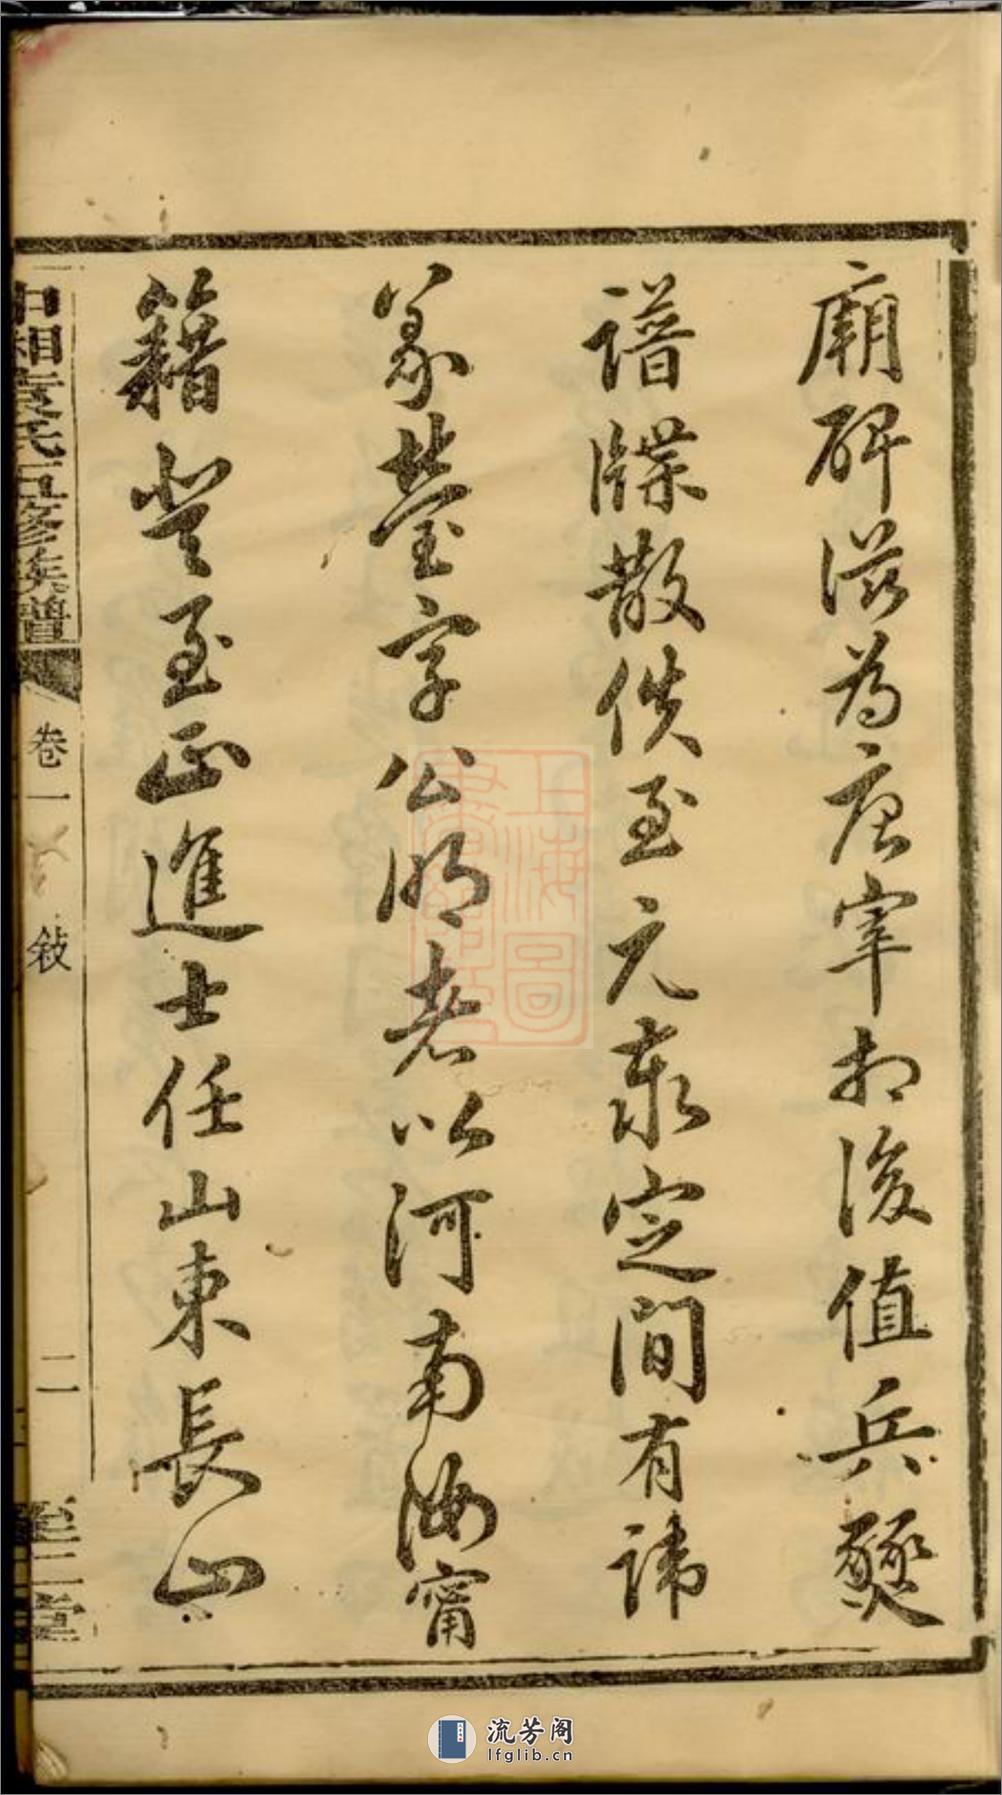 廟碑滋為唐宰相後值兵燹
譜牒散佚至元泰定間有諱
臺字公明者以河南汝甯
籍登至正進士任山東長山
中湘袁氏五修族譜
卷一
敍
二
堂
上海圖
流芳阁
lfglib.cn